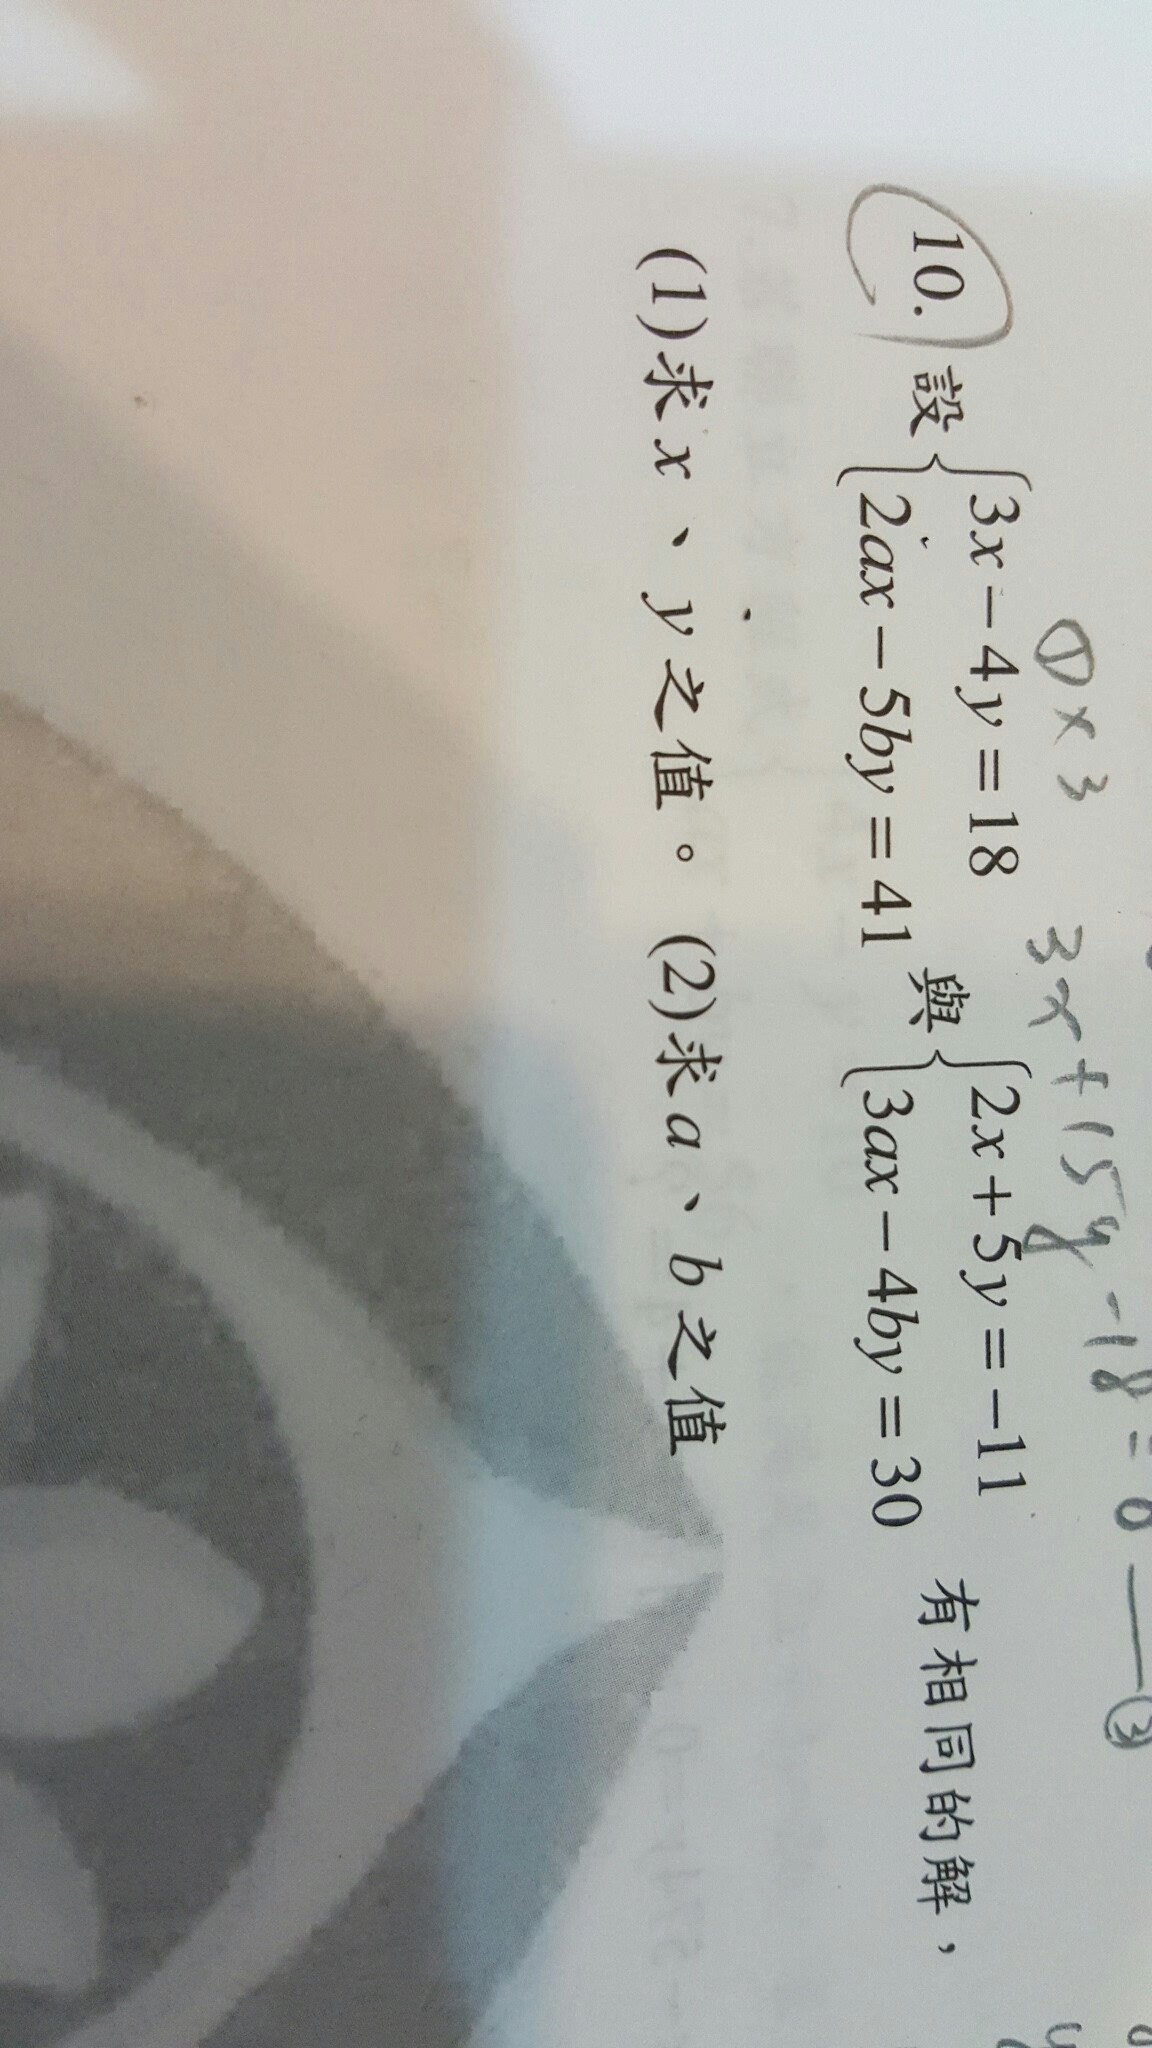 ①×3 3x+15y-18=0 — ③
10. 設 { 3x－4y＝18 與 { 2x＋5y＝－11 有相同的解，
2ax－5by＝41 3ax－4by＝30
(1)求 x、y之值。(2)求a、b之值